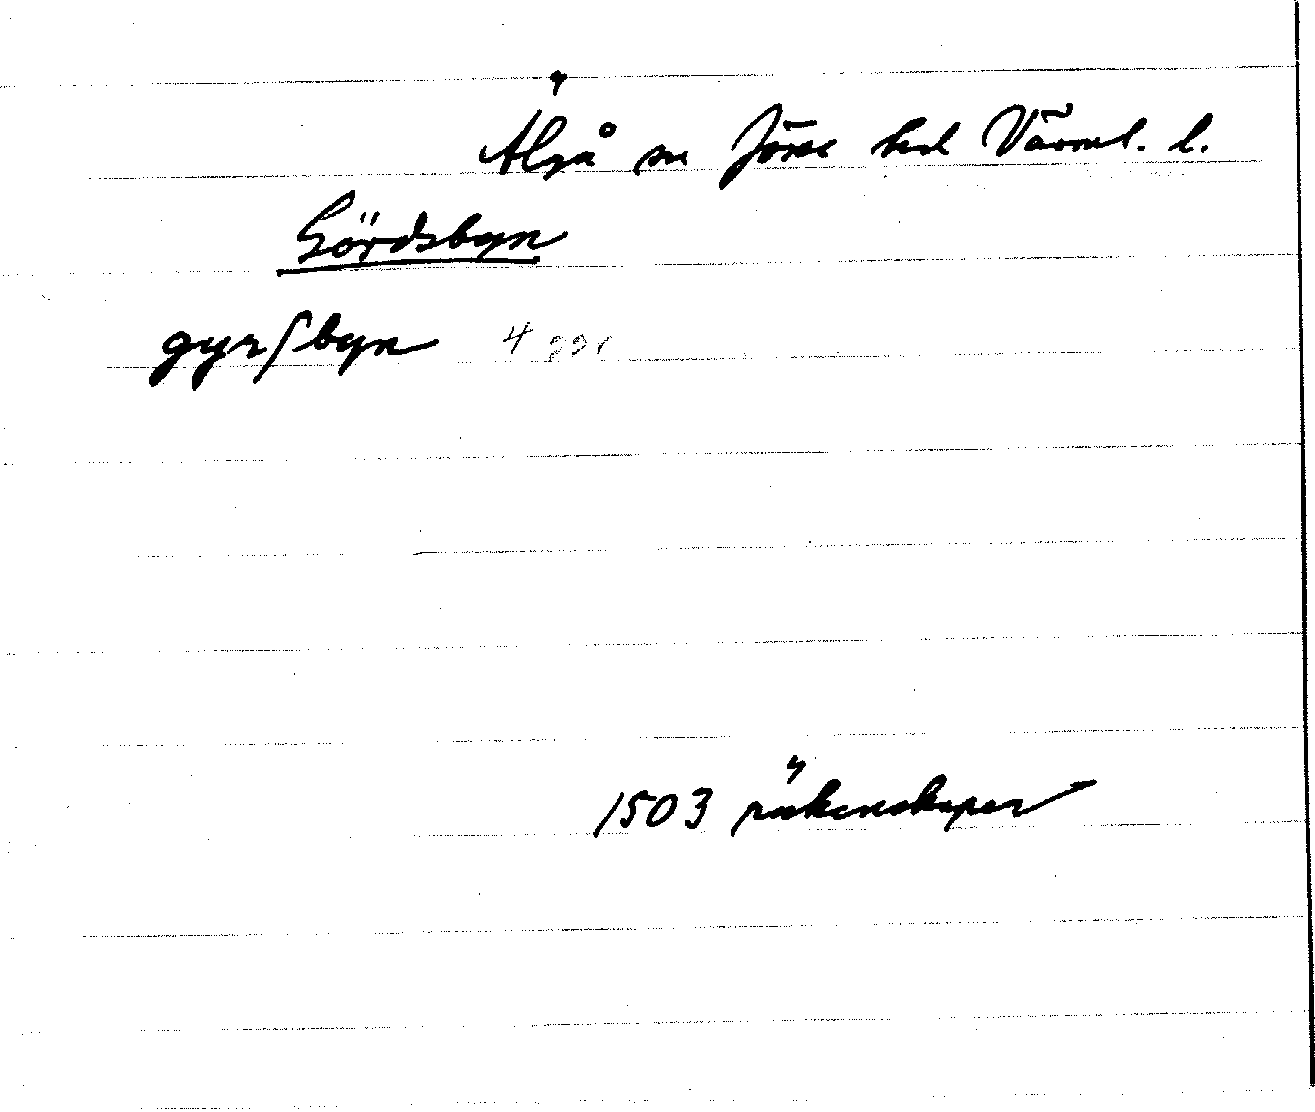 Älgå sn Jösse hd Värml. l.
Gördsbyn
gyrſbyn 4 ggr
1503 räkenskaper